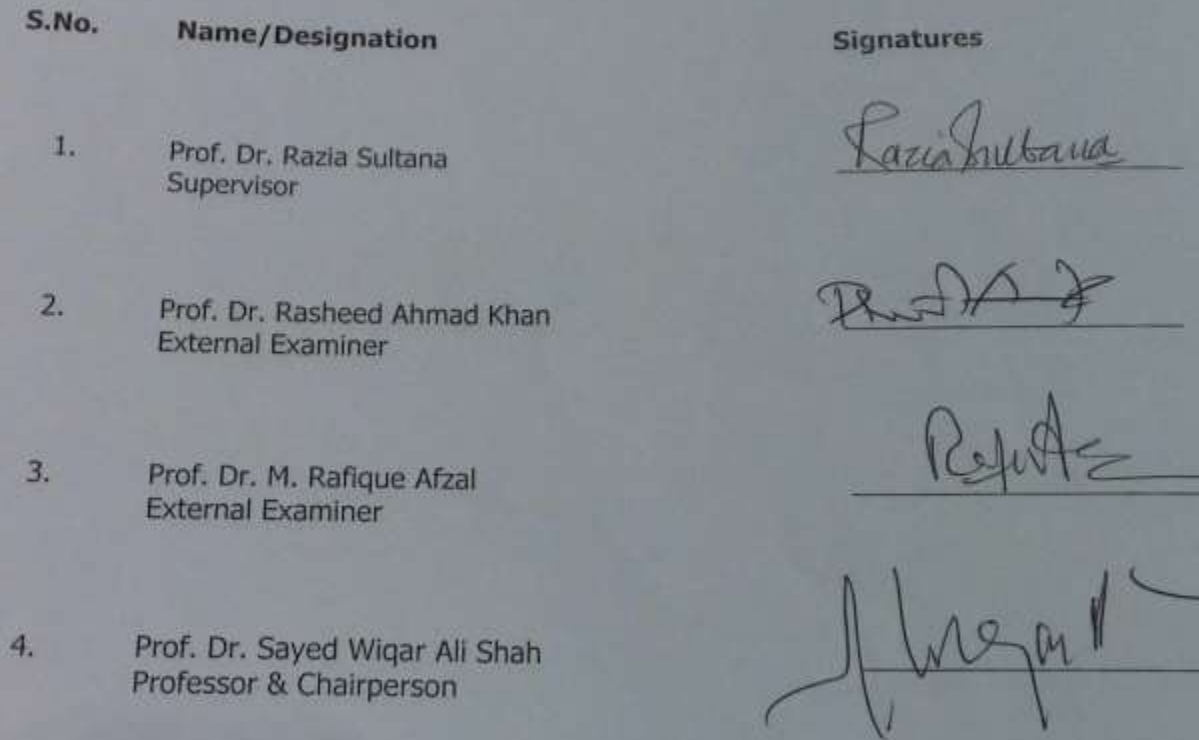 S.No. Name/Designation Signatures
1. Prof. Dr. Razia Sultana Razia Sultana
Supervisor
2. Prof. Dr. Rasheed Ahmad Khan
External Examiner
3. Prof. Dr. M. Rafique Afzal
External Examiner
4. Prof. Dr. Sayed Wiqar Ali Shah
Professor & Chairperson